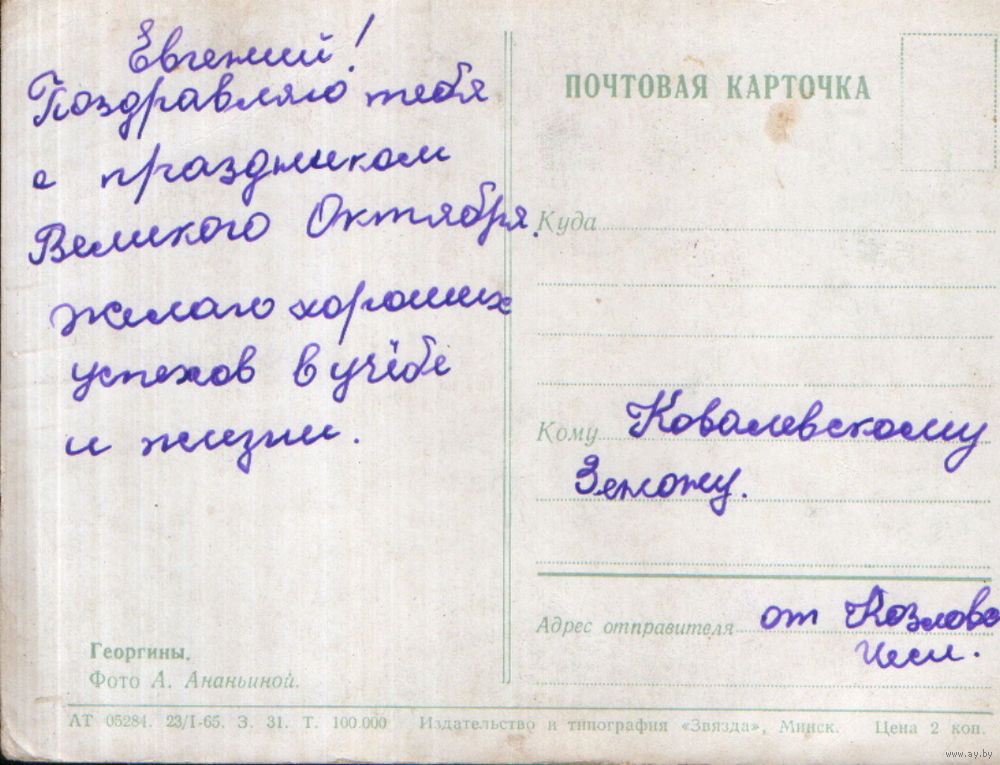 Евгений!
Поздравляю тебя
с праздником
Великого Октября.
желаю хороших
успехов в учёбе
и жизни.
Георгины.
Фото А. Ананьиной.
ПОЧТОВАЯ КАРТОЧКА
Куда
Кому Ковалевскому
Адрес отправителя от Козлово
АТ 05284. 23/I-65. З. 31. Т. 100.000 Издательство и типография «Звязда», Минск. Цена 2 коп.
www.ay.by